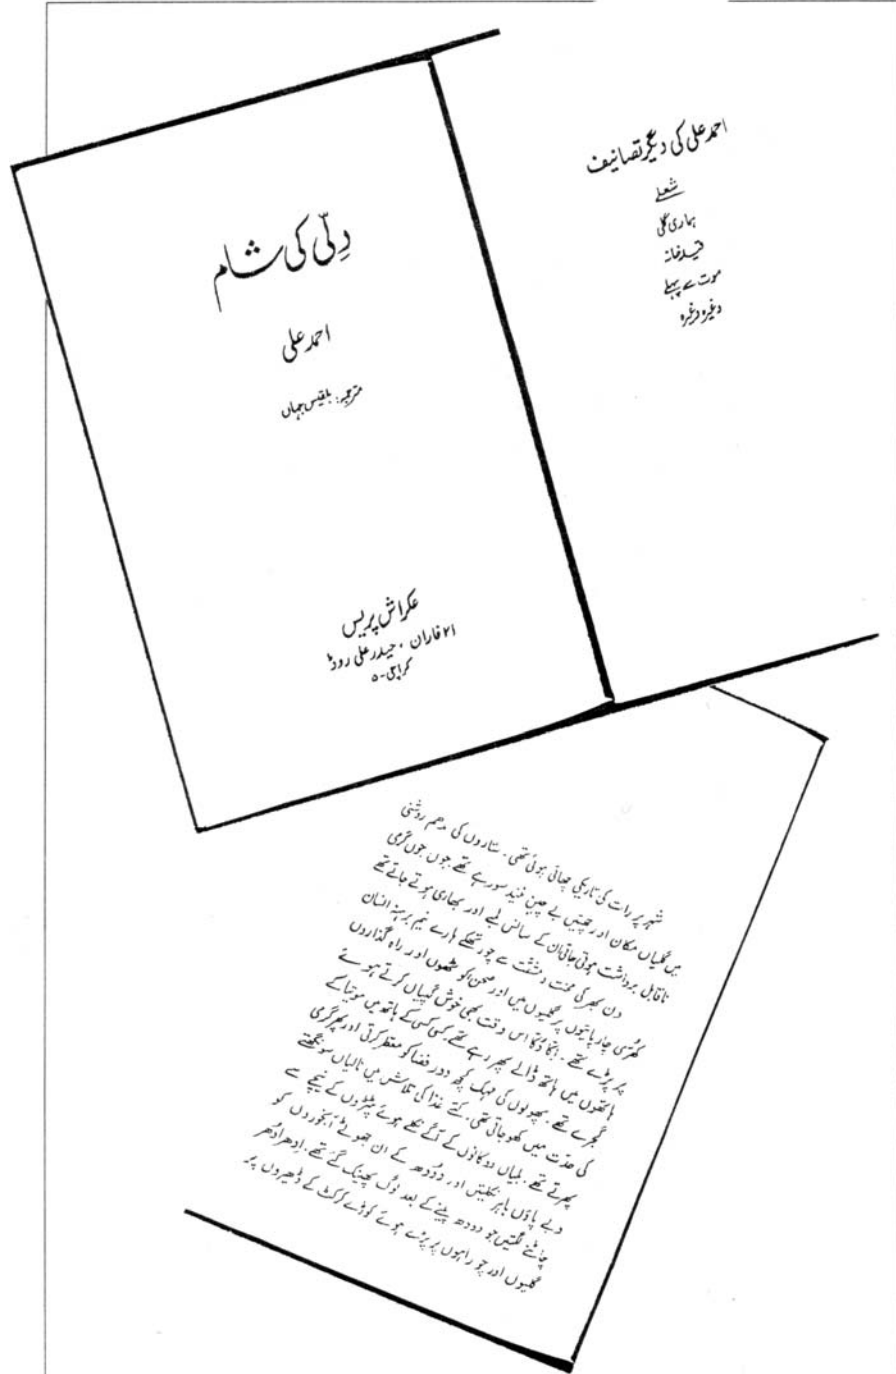 احمد علی کی دیگر تصانیف
شعلے
ہماری گلی
قید خانہ
موت سے پہلے
وغیرہ وغیرہ
دِلّی کی شام
احمد علی
مترجمہ: بلقیس جہاں
عکراش پریس
۲۱ فاران ، حیدر علی روڈ
کراچی-۵
شہر پر رات کی تاریکی چھائی ہوئی تھی۔ ستاروں کی مدھم روشنی
میں گلیاں مکان اور چھتیں بے چین نیند سو رہے تھے جوں جوں گرمی
ناقابل برداشت ہوتی جاتی ان کے سانس لمبے اور بھاری ہوتے جاتے تھے
دن بھر کی محنت و مشقت سے چور تھکے ہارے نیم برہنہ انسان
کھرّی چارپائیوں پر گلیوں میں اور صحن کوٹھوں اور راہ گذاروں
پر پڑے تھے۔ اِکّا دُکّا اس وقت بھی خوش گپیاں کرتے ہوئے
ہاتھوں میں ہاتھ ڈالے پھر رہے تھے کسی کسی کے ہاتھ میں موتیا کے
گجرے تھے۔ پھولوں کی مہک کچھ دور فضا کو معطر کرتی اور پھر گرمی
کی حدّت میں کھو جاتی تھی۔ کتے غذا کی تلاش میں نالیاں سونگھتے
پھرتے تھے۔ بلیاں دوکانوں کے آگے نکلے ہوئے پٹڑوں کے نیچے سے
دبے پاؤں باہر نکلتیں اور دودھ کے ان جھوٹے آبخوروں کو
چاٹنے لگتیں جو دودھ پینے کے بعد لوگ پھینک گئے تھے۔ اِدھر اُدھر
گلیوں اور چوراہوں پر پڑے ہوئے کوڑے کرکٹ کے ڈھیروں پر